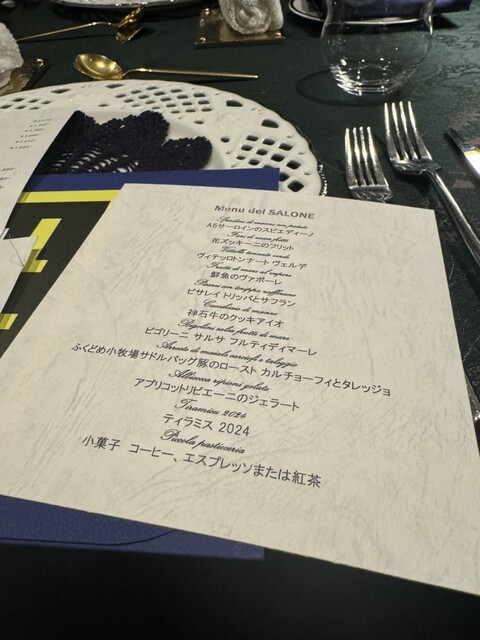 Menu del SALONE
A5サーロインのスピエディーノ
Fiori di zucca fritti
花ズッキーニのフリット
Vitello tonnato verde
ヴィテッロトンナート ヴェルデ
Frutti di mare al vapore
鮮魚のヴァポーレ
Pisarei con trippa zafferano
ピサレイ トリッパとサフラン
Cucchiaio di manzo
神石牛のクッキアイオ
Bigolini salsa frutti di mare
ビゴリーニ サルサ フルティディマーレ
Arrosto di maiale carciofi e taleggio
ふくどめ小牧場サドルバッグ豚のロースト カルチョーフィとタレッジョ
Albicocca ripieni gelato
アプリコットリピエーニのジェラート
Tiramisu 2024
ティラミス 2024
Piccola pasticceria
小菓子 コーヒー、エスプレッソまたは紅茶